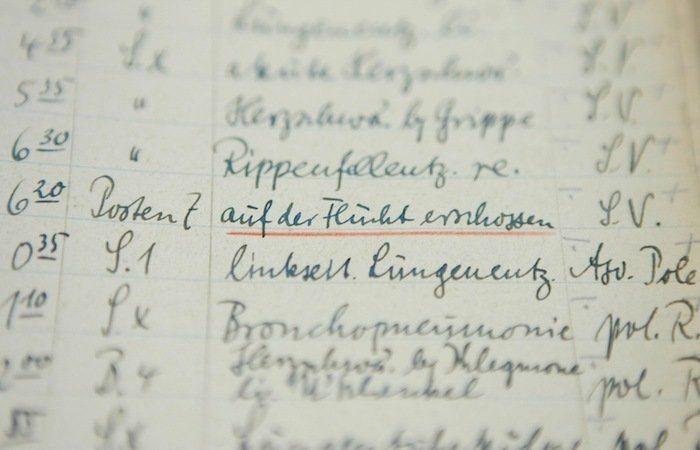 S.V.
4 25 S.x akute Herzschwä. S.V.
5 35 " Herzschwä. by Grippe S.V.
6 30 " Rippenfellentz. re. S.V.
6 20 Posten 7 auf der Flucht erschossen S.V.
0 35 S.1 linkseit. Lungenentz. Aso. Pole
1 10 S.x Bronchopneumonie pol. R.
00 R.4 Herzschwä. by Phlegmone pol. R
S.x